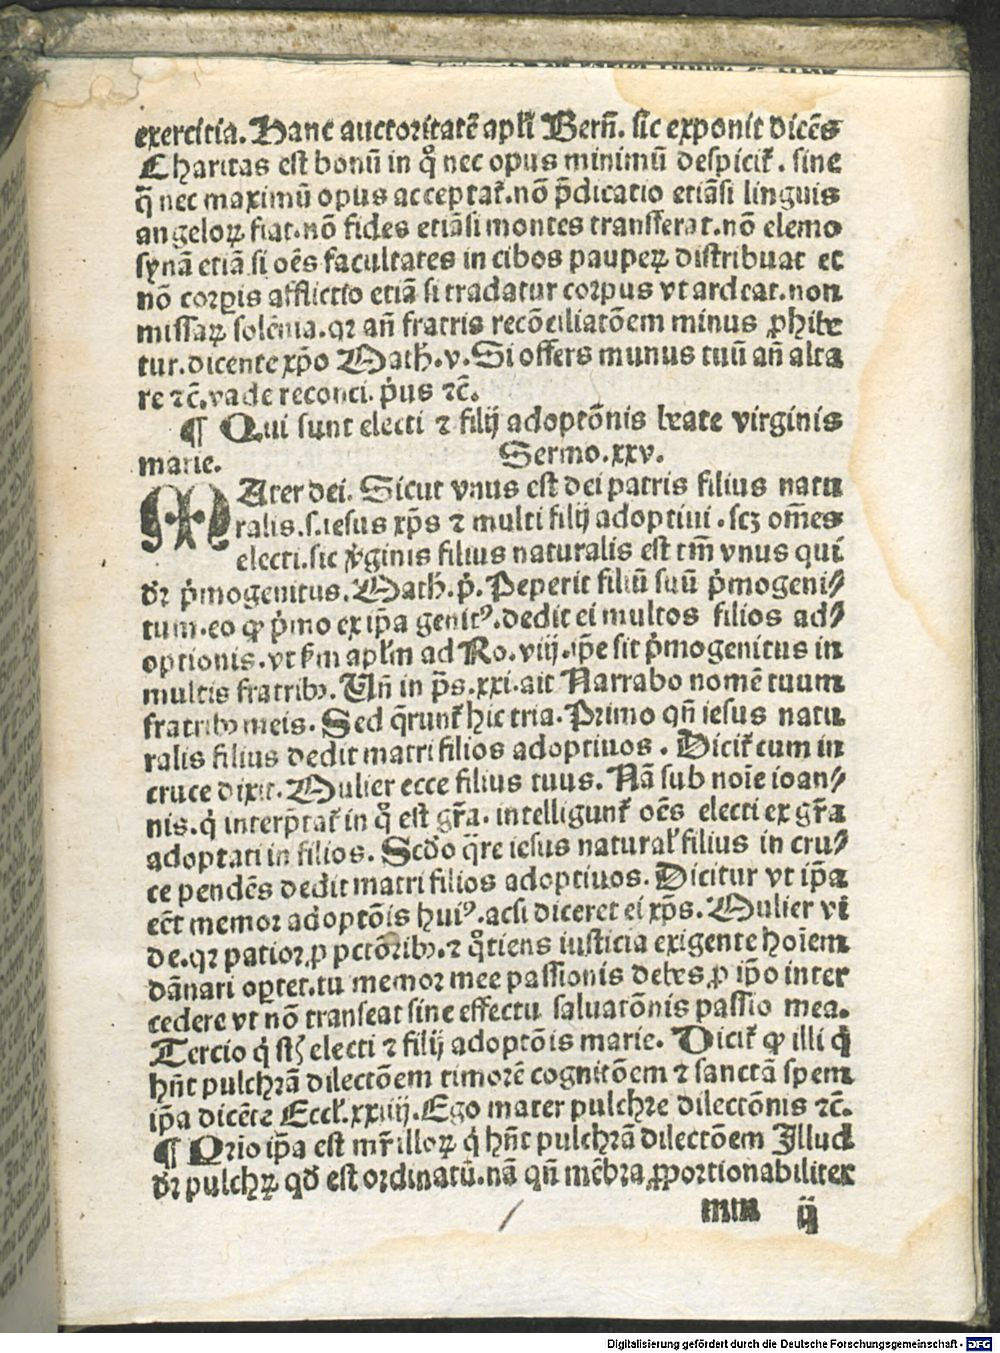 exercitia. Hanc auctoritatē apli Bern̄. sic exponit dicēs
Charitas est bonū in qͦ nec opus minimū despicit᷑. sine
q̄ nec maximū opus acceptat᷑. nō p̄dicatio etiāsi linguis
angeloꝝ fiat. nō fides etiāsi montes transferat. nō elemo
synā etiā si oēs facultates in cibos paupeꝝ distribuat et
nō corꝑis afflictio etiā si tradatur corpus vt ardeat. non
missaꝝ solēnia. qꝛ an̄ fratris recōciliatōem minus ꝓhibe
tur. dicente xp̄o Math̄. v. Si offers munus tuū an̄ alta
re ⁊c̄. vade reconci. p̍us ⁊c̄.
¶ Qui sunt electi ⁊ filij adoptōnis beate virginis
marie. Sermo. xxv.
MAter dei. Sicut vnus est dei patris filius natu
ralis. s. iesus xp̄s ⁊ multi filij adoptiui. scꝫ om̄es
electi. sic v̍ginis filius naturalis est tm̄ vnus qui
dꝛ p̍mogenitus. Math̄. p̍. Peperit filiū suū p̍mogeni⸗
tum. eo ꝙ p̍mo ex ip̄a genitꝰ. dedit ei multos filios ad⸗
optionis. vt ẜm apl̄m ad Ro. viij. ip̄e sit p̍mogenitus in
multis fratribꝫ. Un̄ in p̄s. xxi. ait Narrabo nomē tuum
fratribꝫ meis. Sed q̄runt᷑ hic tria. Primo qn̄ iesus natu
ralis filius dedit matri filios adoptiuos. Dicit᷑ cum in
cruce dixit. Mulier ecce filius tuus. Nā sub noīe ioan⸗
nis. q̍ interp̄tat᷑ in qͦ est gr̄a. intelligunt᷑ oēs electi ex gr̄a
adoptati in filios. Scd̄o q̄re iesus natural̕ filius in cru⸗
ce pendēs dedit matri filios adoptiuos. Dicitur vt ip̄a
eēt memor adoptōis huiꝰ. acsi diceret ei xp̄s. Mulier vi
de. qꝛ patior ꝓ pctōribꝫ. ⁊ qͦtiens iusticia exigente hoīem
dānari oꝑtet. tu memor mee passionis debes ꝓ ip̄o inter
cedere vt nō transeat sine effectu saluatōnis passio mea.
Tercio q̍ st̄ electi ⁊ filij adoptōis marie. Dicit᷑ ꝙ illi q̍
hn̄t pulchrā dilectōem timorē cognitōem ⁊ sanctā spem
ip̄a dicēte Eccl̕. xxiiij. Ego mater pulchre dilectōnis ⁊c̄.
¶ Prio ip̄a est mr̄ illoꝝ q̍ hn̄t pulchrā dilectōem Illud
dꝛ pulchꝝ qd̄ est ordinatū. nā qn̄ mēbra ꝓportionabiliter
mm ij
Digitalisierung gefördert durch die Deutsche Forschungsgemeinschaft - DFG